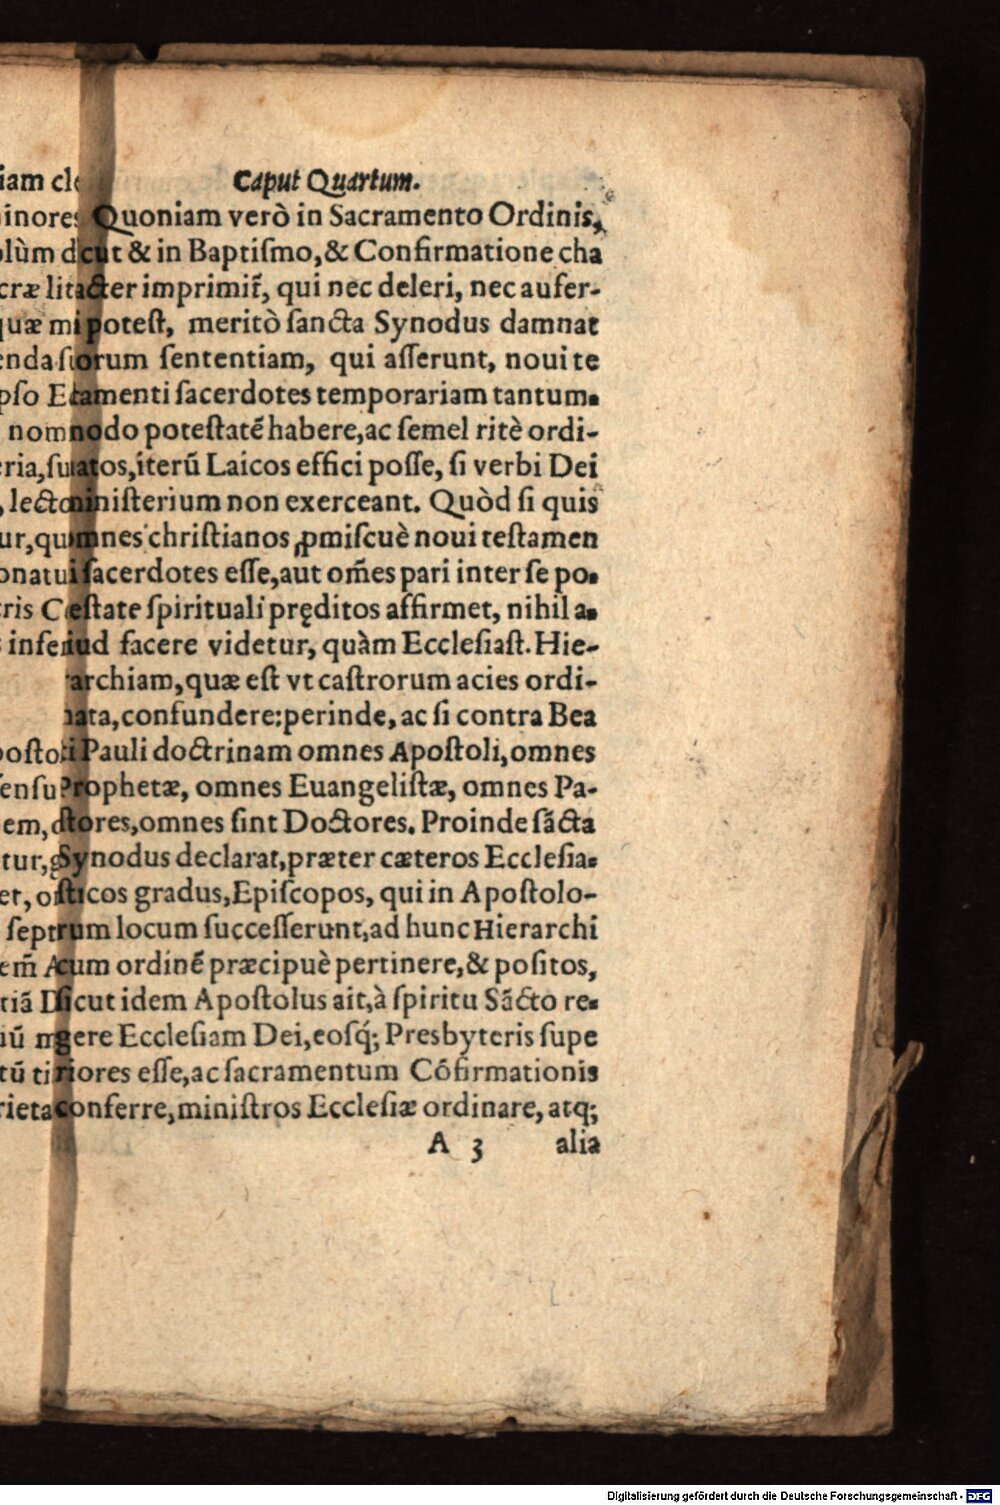 Caput Quartum.
Quoniam verò in Sacramento Ordinis,
cut & in Baptiſmo,& Confirmatione cha
cter imprimit̃, qui nec deleri, nec aufer-
poteſt, meritò ſancta Synodus damnat
orum ſententiam, qui aſſerunt, noui te
tamenti ſacerdotes temporariam tantum.
modo poteſtatẽ habere,ac ſemel ritè ordi-
atos,iterũ Laicos effici poſſe, ſi verbi Dei
miniſterium non exerceant. Quòd ſi quis
mnes chriſtianos ꝓmiſcuè noui teſtamen
ſacerdotes eſſe,aut om̃es pari inter ſe po.
eſtate ſpirituali pręditos affirmet, nihil a.
iud facere videtur, quàm Eccleſiaſt. Hie-
archiam,quæ eſt vt caſtrorum acies ordi-
nata,confundere:perinde, ac ſi contra Bea
ti Pauli doctrinam omnes Apoſtoli,omnes
Prophetæ, omnes Euangeliſtæ, omnes Pa-
ſtores,omnes ſint Doctores. Proinde ſãcta
Synodus declarat,præter cæteros Eccleſia.
ſticos gradus,Epiſcopos, qui in Apoſtolo-
rum locum ſucceſſerunt,ad hunc Hierarchi
cum ordinẽ præcipuè pertinere,& poſitos,
ſicut idem Apoſtolus ait,à ſpiritu Sãcto re.
gere Eccleſiam Dei,eoſq́; Presbyteris ſupe
riores eſſe,ac ſacramentum Cõfirmationis
conferre,miniſtros Eccleſiæ ordinare, atq;
A 3 alia
Digitalisierung gefördert durch die Deutsche Forschungsgemeinschaft - DFG